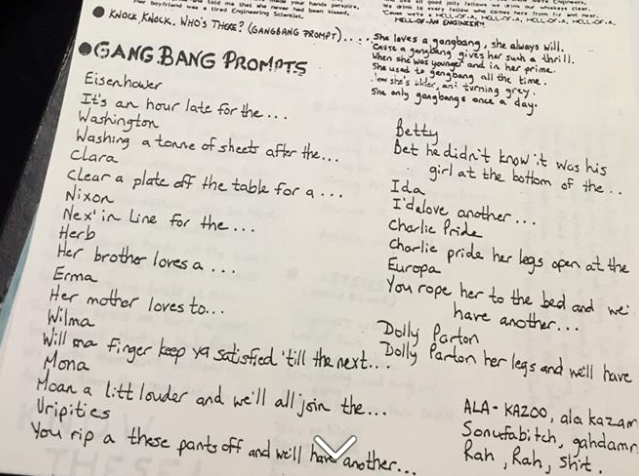 her boyfriend
and told me that she never had been kissed,
a tired Engineering Scientist.
HELL-OF-AN ENGINEER!!
• KNOCK, KNOCK. WHO'S THERE? (GANGBANG PROMPT)....
She loves a gangbang, she always will.
'Cause a gangbang gives her such a thrill.
When she was younger and in her prime.
She used to gangbang all the time.
she's older, and turning grey.
She only gangbangs once a day.
• GANG BANG PROMPTS
Eisenhower
It's an hour late for the...
Washington
Washing a tonne of sheets after the...
Clara
Clear a plate off the table for a...
Nixon
Nex' in Line for the...
Herb
Her brother loves a ...
Erma
Her mother loves to...
Wilma
Will ma finger keep ya satisfied 'till the next...
Mona
Moan a litt louder and we'll all join the...
Uripities
You rip a these pants off and we'll have another...
Betty
Bet he didn't know it was his
girl at the bottom of the ..
Ida
I'da love another...
Charlie Pride
Charlie pride her legs open at the
Europa
You rope her to the bed and we'
have another...
Dolly Parton
Dolly Parton her legs and we'll have
ALA-KAZOO, ala kazam
Sonufabitch, gahdamn
Rah, Rah, shit.